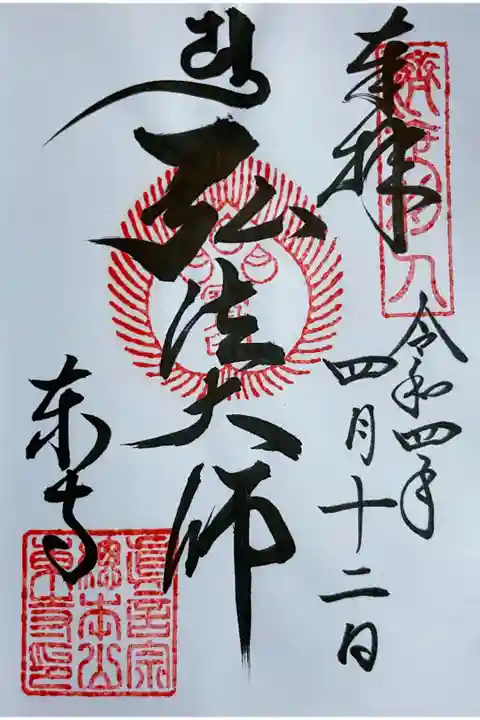 奉拝
令和四年
四月十二日
弘法大師
東寺
真言宗
總本山
東寺印